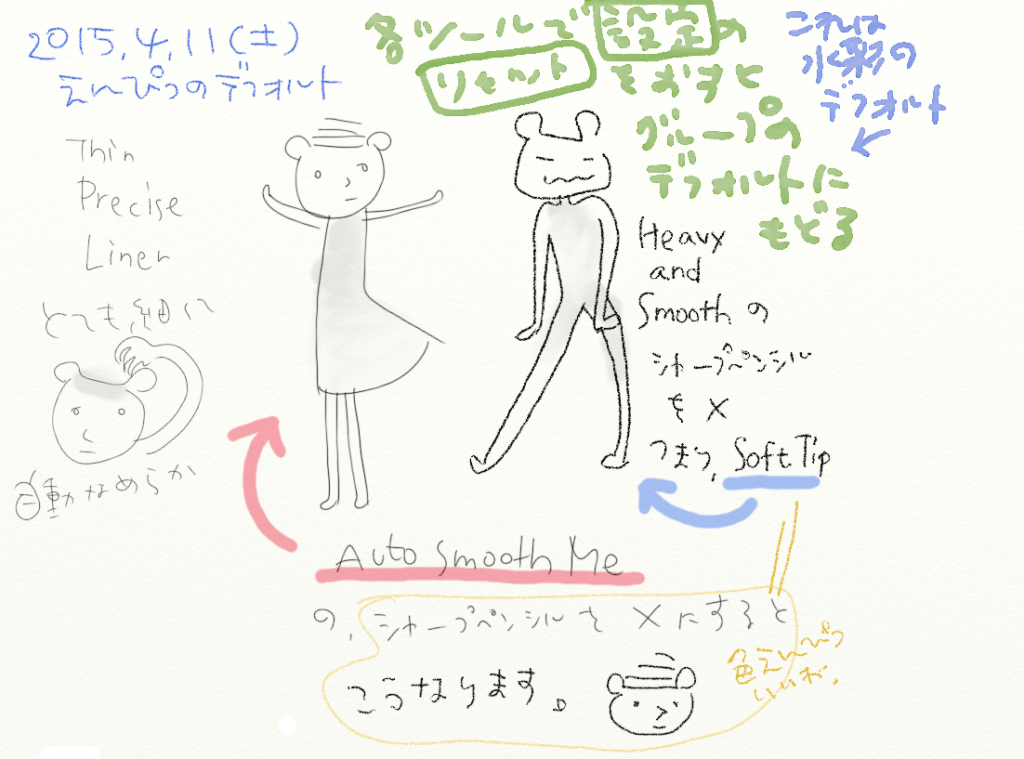 2015,4,11(土)
えんぴつのデフォルト
各ツールで設定の
リセット
をおすと
グループの
デフォルトに
もどる
これは
水彩の
デフォルト
Thin
Precise
Liner
とても、細くて
自動なめらか
Heavy
and
Smooth の
シャープペンシル
を X
つまり、Soft Tip
Auto Smooth Me
の、シャープペンシルを X にすると
こうなります。
色えんぴつ
いいが、